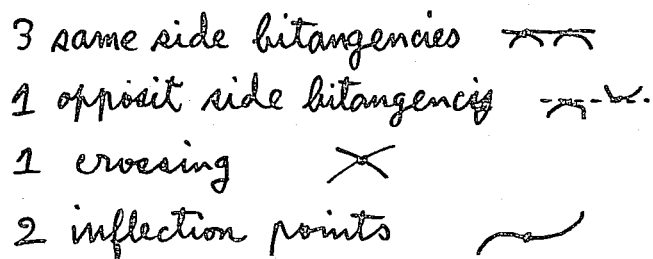 3 same side bitangencies
1 opposit side bitangencis
1 crossing
2 inflection points